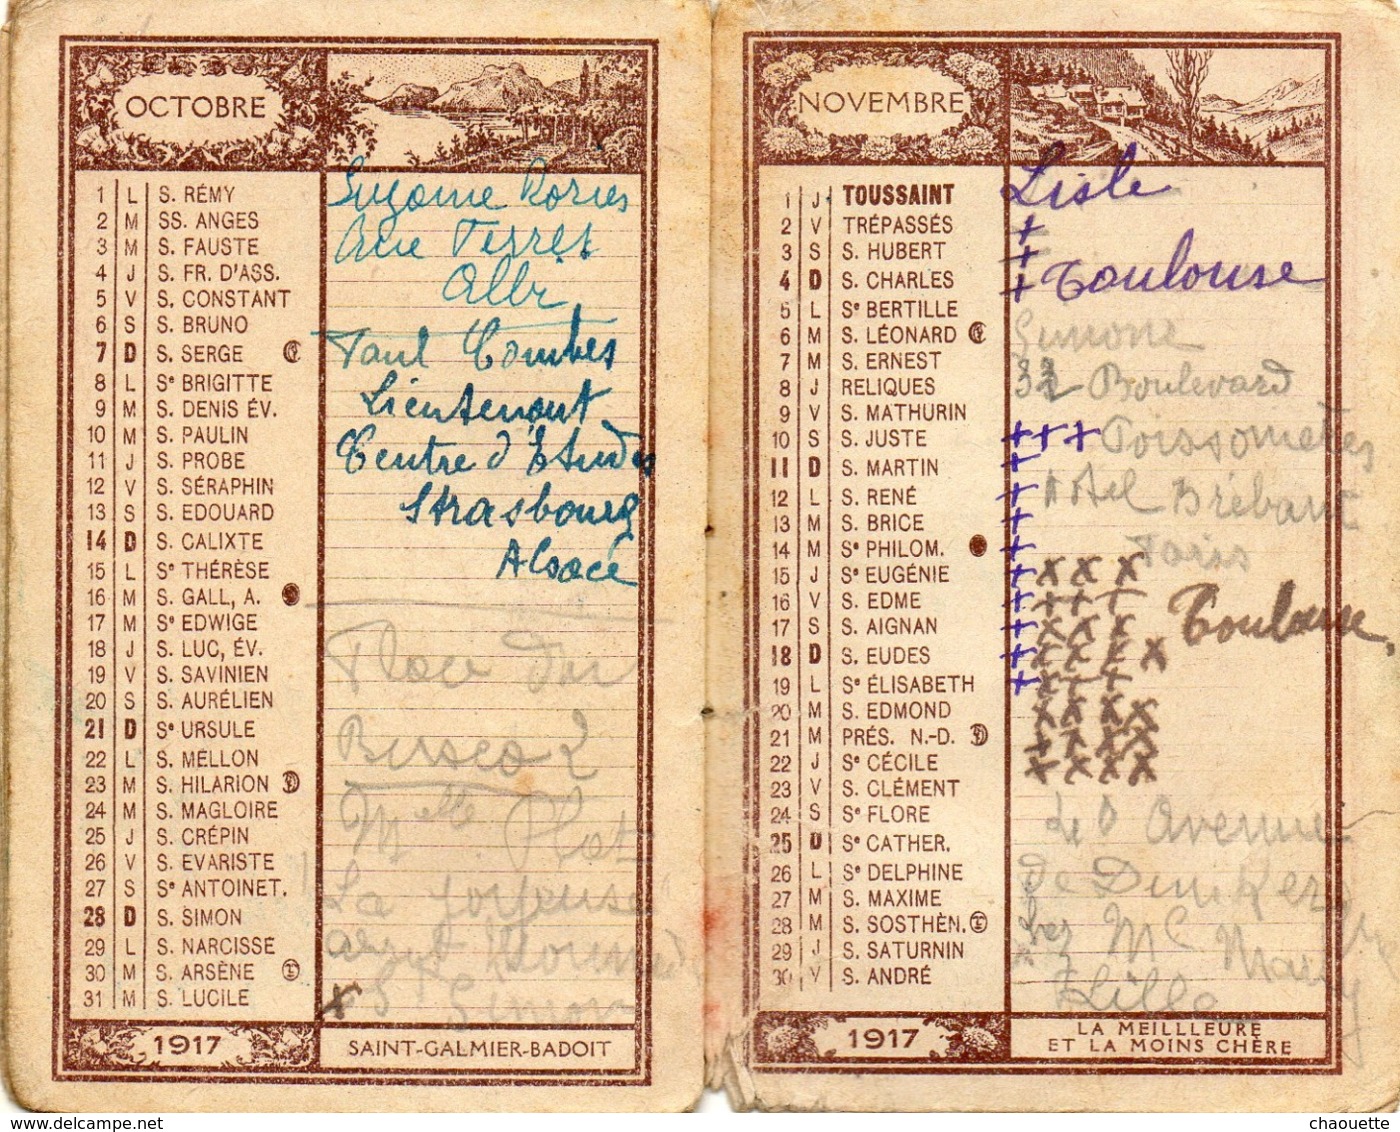 OCTOBRE
1 L S. RÉMY
2 M SS. ANGES
3 M S. FAUSTE
4 J S. FR. D'ASS.
5 V S. CONSTANT
6 S S. BRUNO
7 D S. SERGE
8 L Se BRIGITTE
9 M S. DENIS ÉV.
10 M S. PAULIN
11 J S. PROBE
12 V S. SÉRAPHIN
13 S S. EDOUARD
14 D S. CALIXTE
15 L Se THÉRÈSE
16 M S. GALL, A.
17 M Se EDWIGE
18 J S. LUC, ÉV.
19 V S. SAVINIEN
20 S S. AURÉLIEN
21 D Se URSULE
22 L S. MELLON
23 M S. HILARION
24 M S. MAGLOIRE
25 J S. CRÉPIN
26 V S. EVARISTE
27 S Se ANTOINET.
28 D S. SIMON
29 L S. NARCISSE
30 M S. ARSÈNE
31 M S. LUCILE
Suzanne
Albi
Paul Combes
Lieutenant
Centre d'Etudes
Strasbourg
Alsace
Place du
Melle
La joyeuse
St Simon
1917
SAINT-GALMIER-BADOIT
NOVEMBRE
1 J TOUSSAINT
2 V TRÉPASSÉS
3 S S. HUBERT
4 D S. CHARLES
5 L Se BERTILLE
6 M S. LÉONARD
7 M S. ERNEST
8 J RELIQUES
9 V S. MATHURIN
10 S S. JUSTE
11 D S. MARTIN
12 L S. RENÉ
13 M S. BRICE
14 M Se PHILOM.
15 J Se EUGÉNIE
16 V S. EDME
17 S S. AIGNAN
18 D S. EUDES
19 L Se ÉLISABETH
20 M S. EDMOND
21 M PRÉS. N.-D.
22 J Se CÉCILE
23 V S. CLÉMENT
24 S Se FLORE
25 D Se CATHER.
26 L Se DELPHINE
27 M S. MAXIME
28 M S. SOSTHÈN.
29 J S. SATURNIN
30 V S. ANDRÉ
Lisle
+
+
+ Toulouse
Simone
32 Boulevard
+++ Poissonnières
Hotel Brébant
Paris
Toulouse
Avenue
de Dunkerque
chez Me
Lille
1917
LA MEILLLEURE
ET LA MOINS CHÈRE
delcampe.net
chaouette